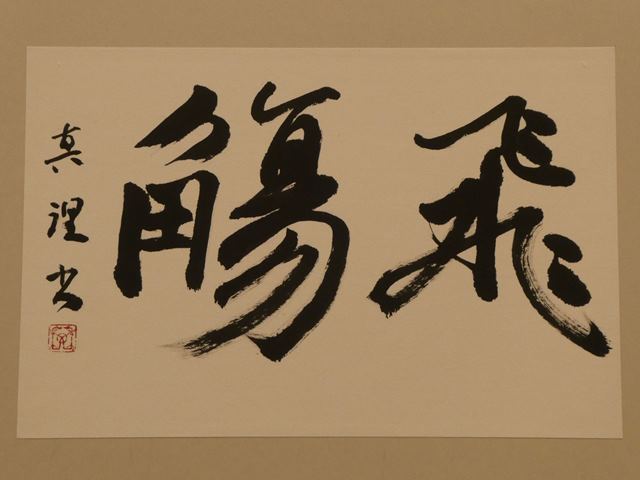 飛觴
真理书